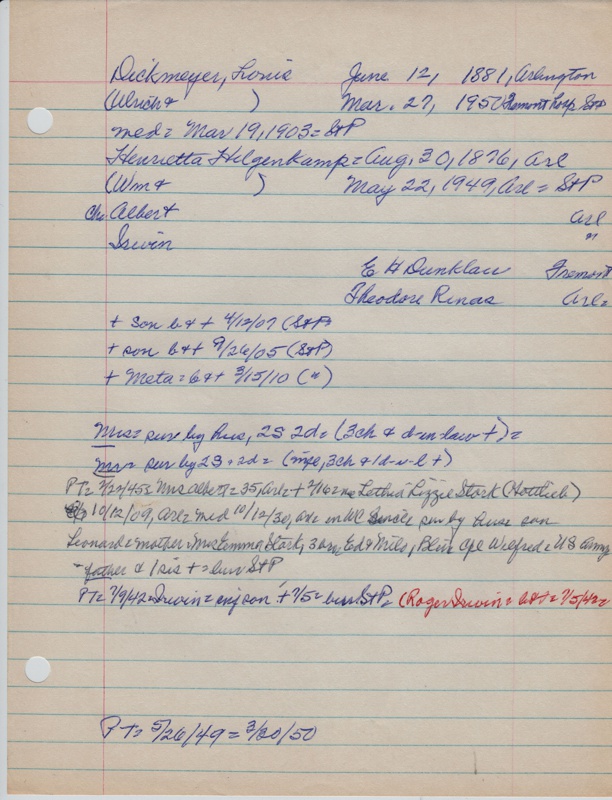 Dickmeyer, Louis June 12, 1881, Arlington
(Ulrich & ) Mar. 27, 1950 Fremont Hosp. StP
med = Mar 19, 1903 = StP
Henrietta Hilgenkamp = Aug. 30, 1876, Arl
(Wm & ) May 22, 1949, Arl = StP
Ch. Albert Arl
Irwin "
E H Dunklau Fremont
Theodore Rinas Arl =
+ son b & + 4/12/07 (StP)
+ son b & + 9/26/05 (StP)
+ Meta = b & + 3/15/10 (")
Mrs = surv by hus, 2S 2d = (3ch & d-in-law +) =
Mr = surv by 2S + 2d = (wife, 3ch & 1 d-n-l +)
PT = Mrs Albert = 35, Arl = + 2/16 = Lizzie Stork (Gottlieb)
10/12/09, Arl = Med 10/12/30, Arl = surv by hus son
Leonard = mother = Mrs Emma Stork, 3 Ed & Milo, Blair Cpl Wilfred = US Army
father & 1 sis + = bur StP
PT = 7/9/42 = Irwin = son + 7/5 = bur StP = (Roger Irwin = b & + = 7/5/42 =
PT = 5/26/49 = 3/30/50